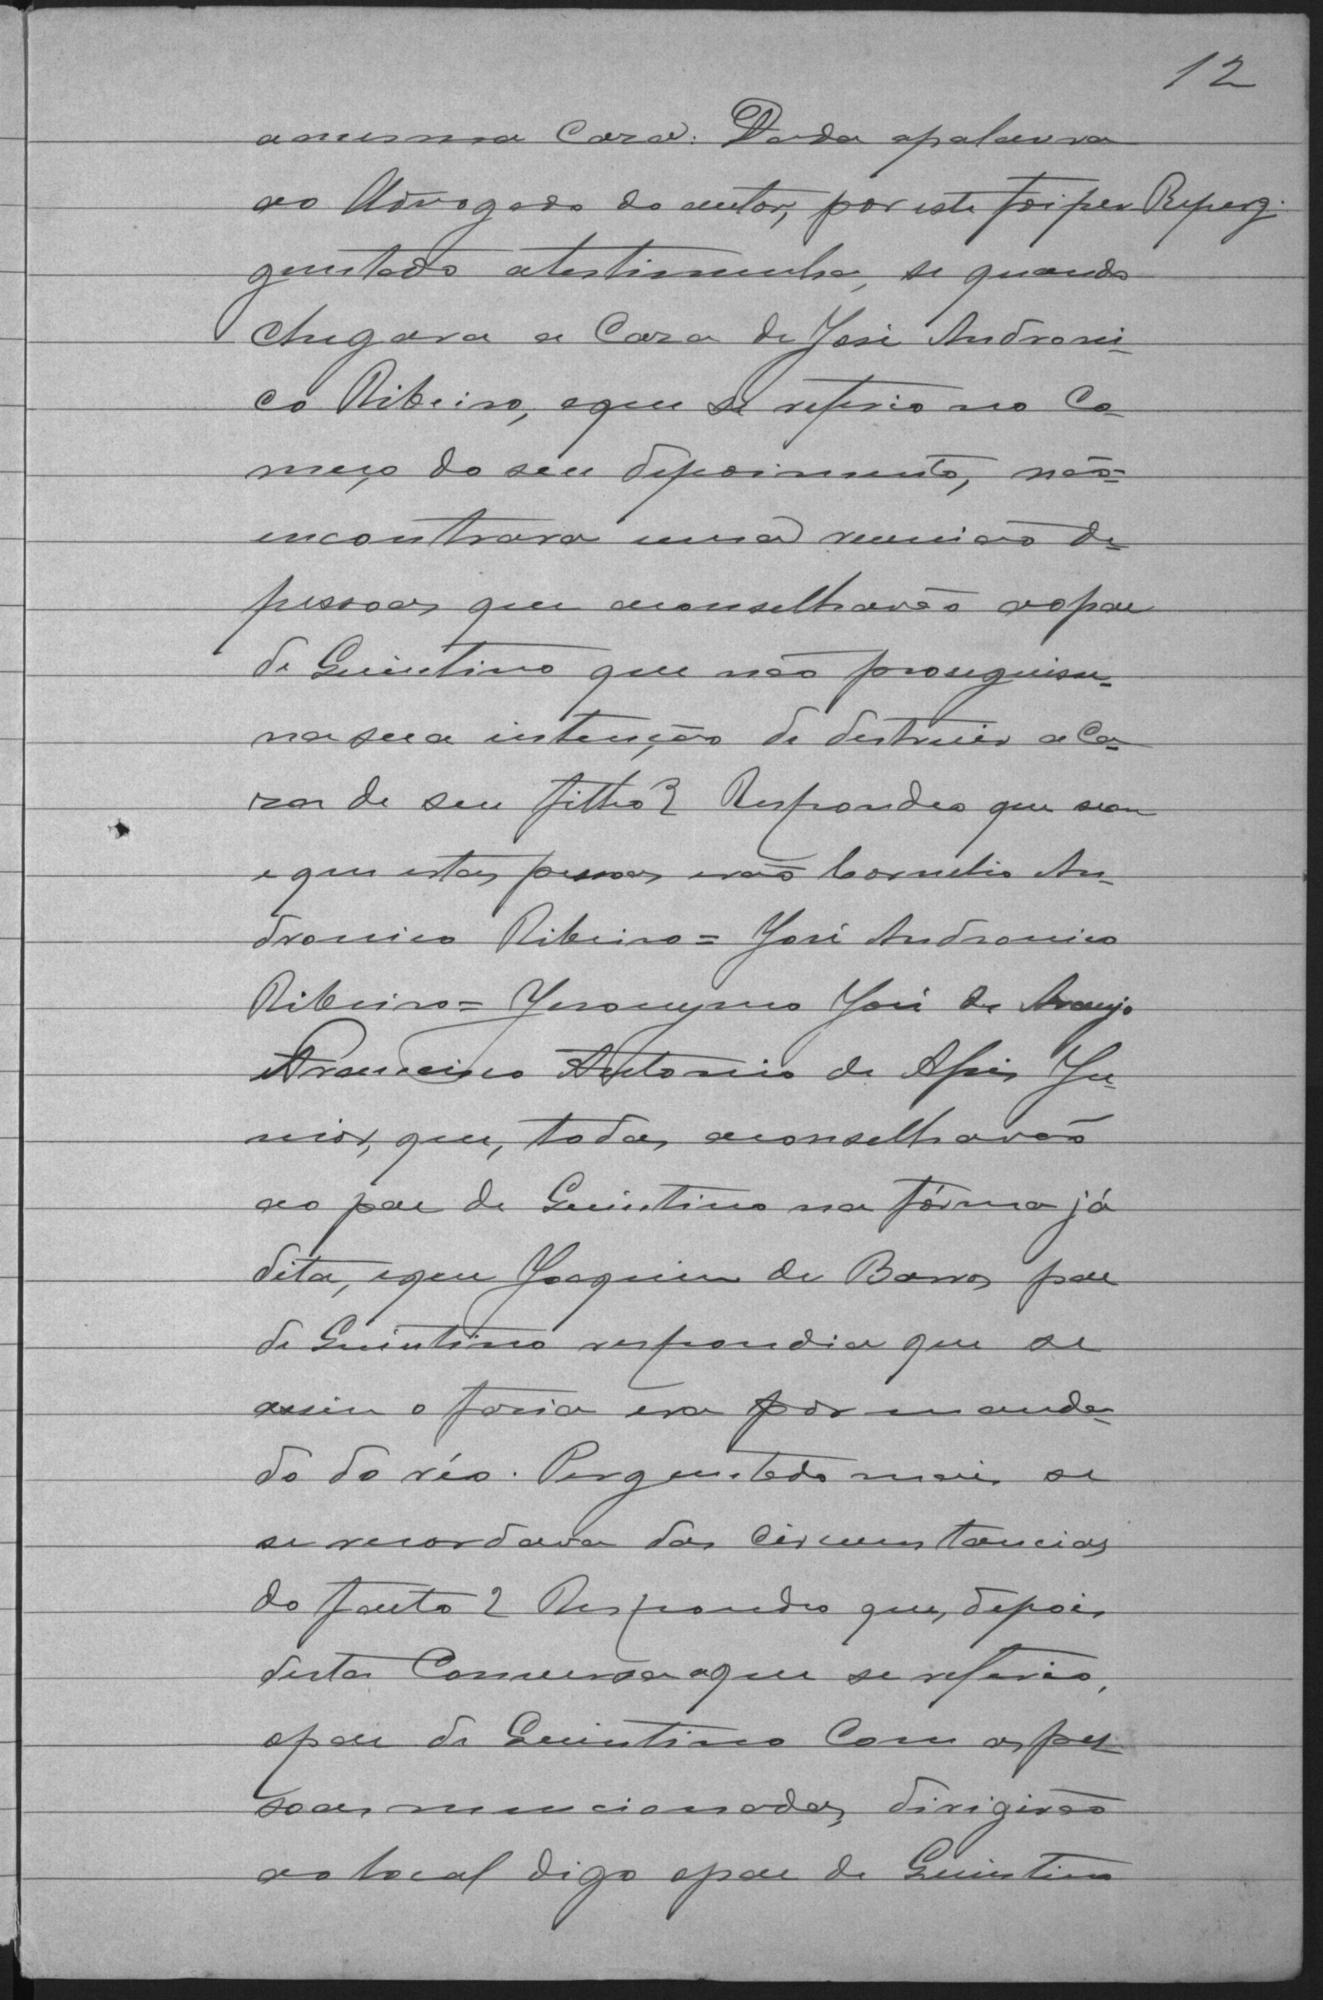 12
a mesma Caza. Dada a palavra
ao Advogado do autor, por este foi per Reperg.
guntado a testimunha, se quando
chegara a Caza de José Androni-
co Ribeiro, a que se referio no Co-
meço do seu depoimento, não=
encontrara uma reunião de-
pessoas que aconselhavão ao pae
de Quintino que não proseguisse-
na sua intenção de destruir a Ca-
za de seu filho? Respondeo que sim
e que estas pessoas erão Cornelio An-
dronico Ribeiro= José Andronico
Ribeiro= Jeronymo José de Araujo
Francisco Antonio de Assis Ju-
nior, que, todas aconselhavão
ao pae de Quintino na fórma já
dita, e que Joaquim de Barros pae
de Quintino respondia que se
assim o fasia era por manda-
do do réo. Perguntado mais se
se recordava das circumstancias
do facto? Respondeo que, depois
desta Conversa a que se referio,
o pae de Quintino Com as pes-
soas mencionadas, dirigirão
ao local digo o pae de Quintino